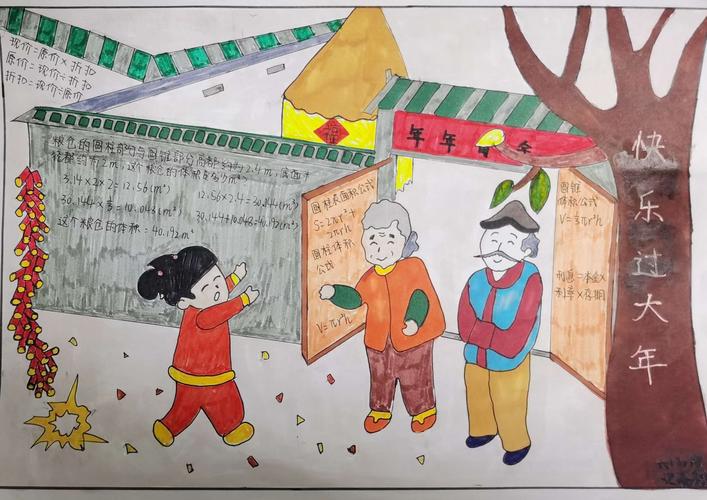 现价=原价×折扣
原价=现价÷折扣
折扣=现价÷原价
粮仓的圆柱部分与圆锥部分高都约为2.4m,底面半
径都约为2m,这个粮仓的体积是多少m³
3.14×2×2=12.56(m²)
12.56×2.4=30.144(m³)
30.144×⅓=10.048(m³)
30.144+10.048=40.192(m³)
这个粮仓的体积=40.192m³
福
年年有余
圆柱表面积公式
S=2πr²+
2πrh
圆柱体积
公式
V=πr²h
圆锥
体积公式
V=⅓πr²h
利息=本金×
利率×存期
快乐过大年